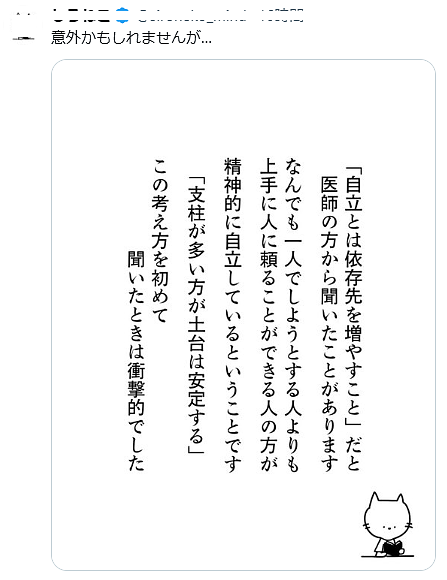 意外かもしれませんが…
「自立とは依存先を増やすこと」だと
医師の方から聞いたことがあります
なんでも一人でしようとする人よりも
上手に人に頼ることができる人の方が
精神的に自立しているということです
「支柱が多い方が土台は安定する」
この考え方を初めて
聞いたときは衝撃的でした